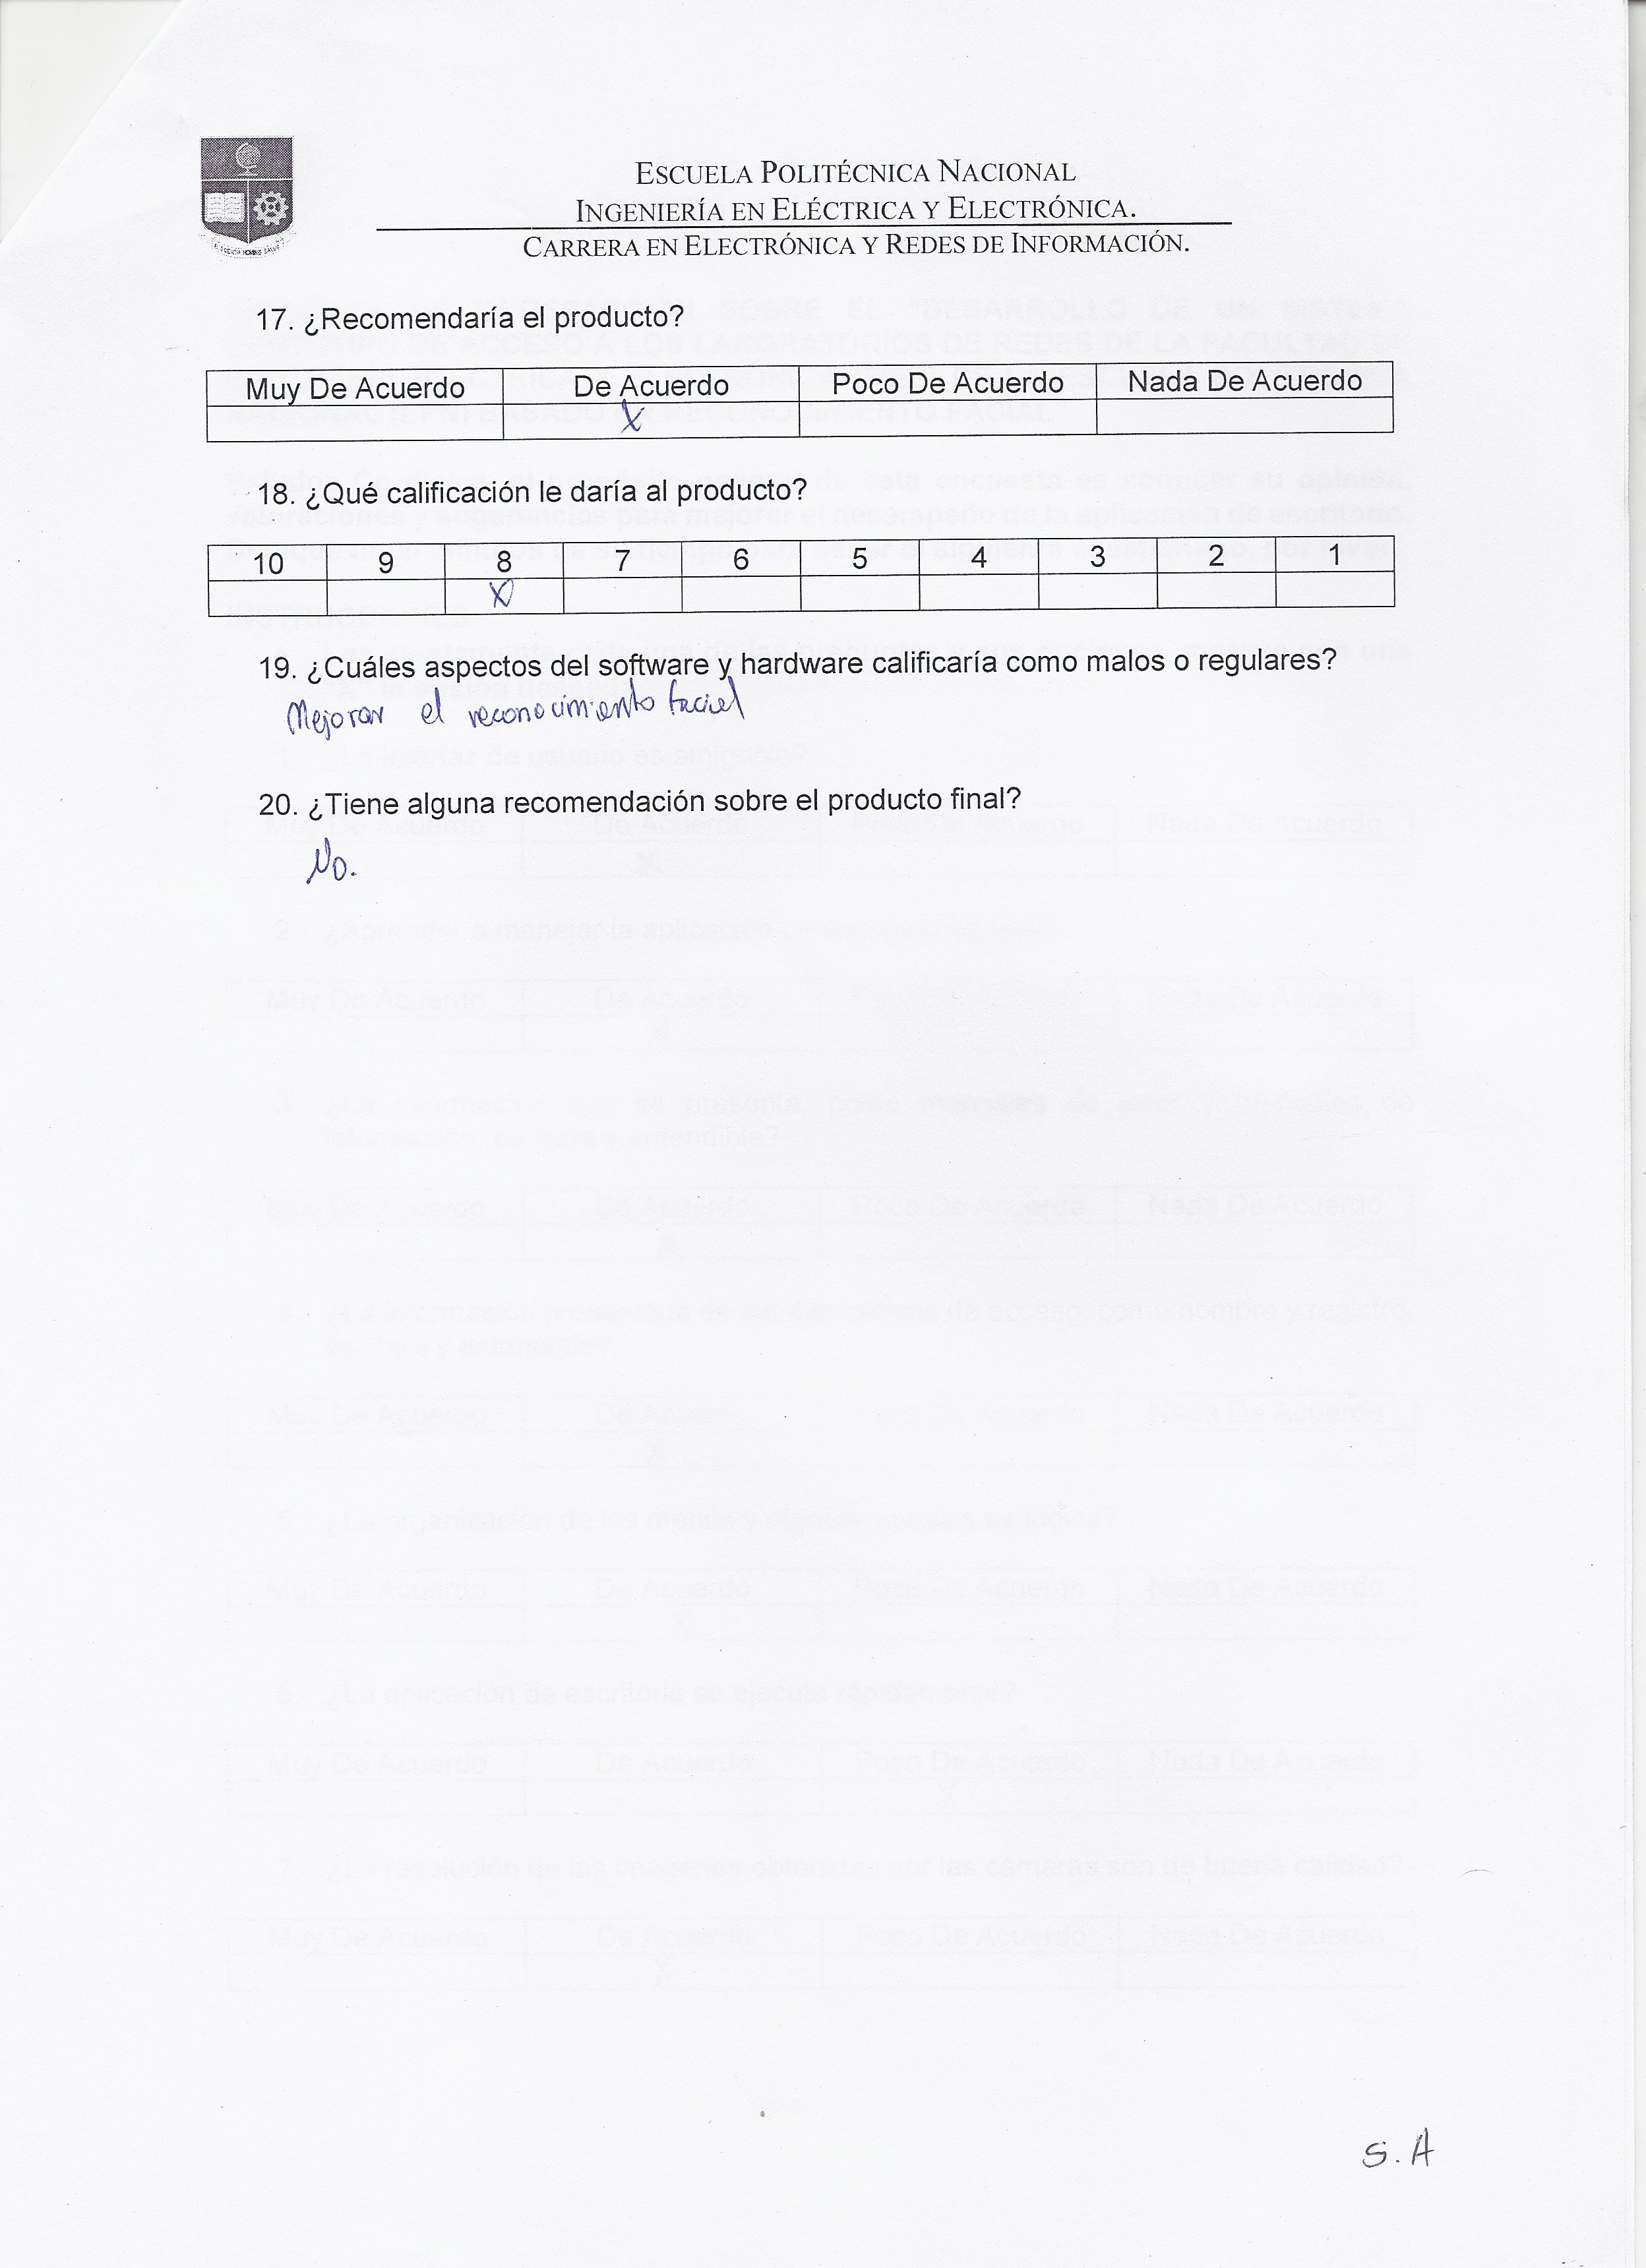 ESCUELA POLITÉCNICA NACIONAL
INGENIERÍA EN ELÉCTRICA Y ELECTRÓNICA.
CARRERA EN ELECTRÓNICA Y REDES DE INFORMACIÓN.
17. ¿Recomendaría el producto?
Muy De Acuerdo De Acuerdo Poco De Acuerdo Nada De Acuerdo
X
18. ¿Qué calificación le daría al producto?
10 9 8 7 6 5 4 3 2 1
X
19. ¿Cuáles aspectos del software y hardware calificaría como malos o regulares?
Mejorar el reconocimiento facial
20. ¿Tiene alguna recomendación sobre el producto final?
No.
S.A